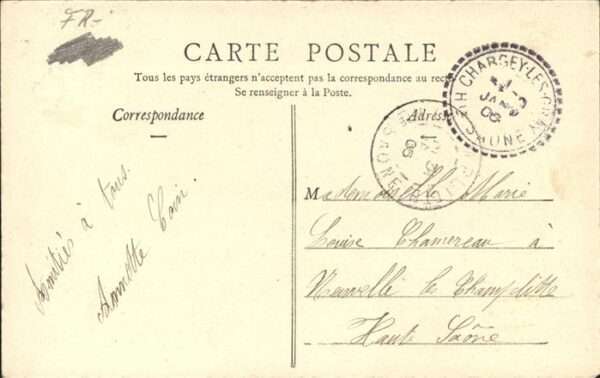 FR-
CARTE POSTALE
Tous les pays étrangers n'acceptent pas la correspondance au rec
Se renseigner à la Poste.
Correspondance
Adres
CHARGEY-LES-GRAY
JANV
06
Hte SAONE
SAONE
06
Amitiés à tous.
Annette
Mademoiselle Marie
Louise Chamereau à
Neuvelle les Champlitte
Haute Saône